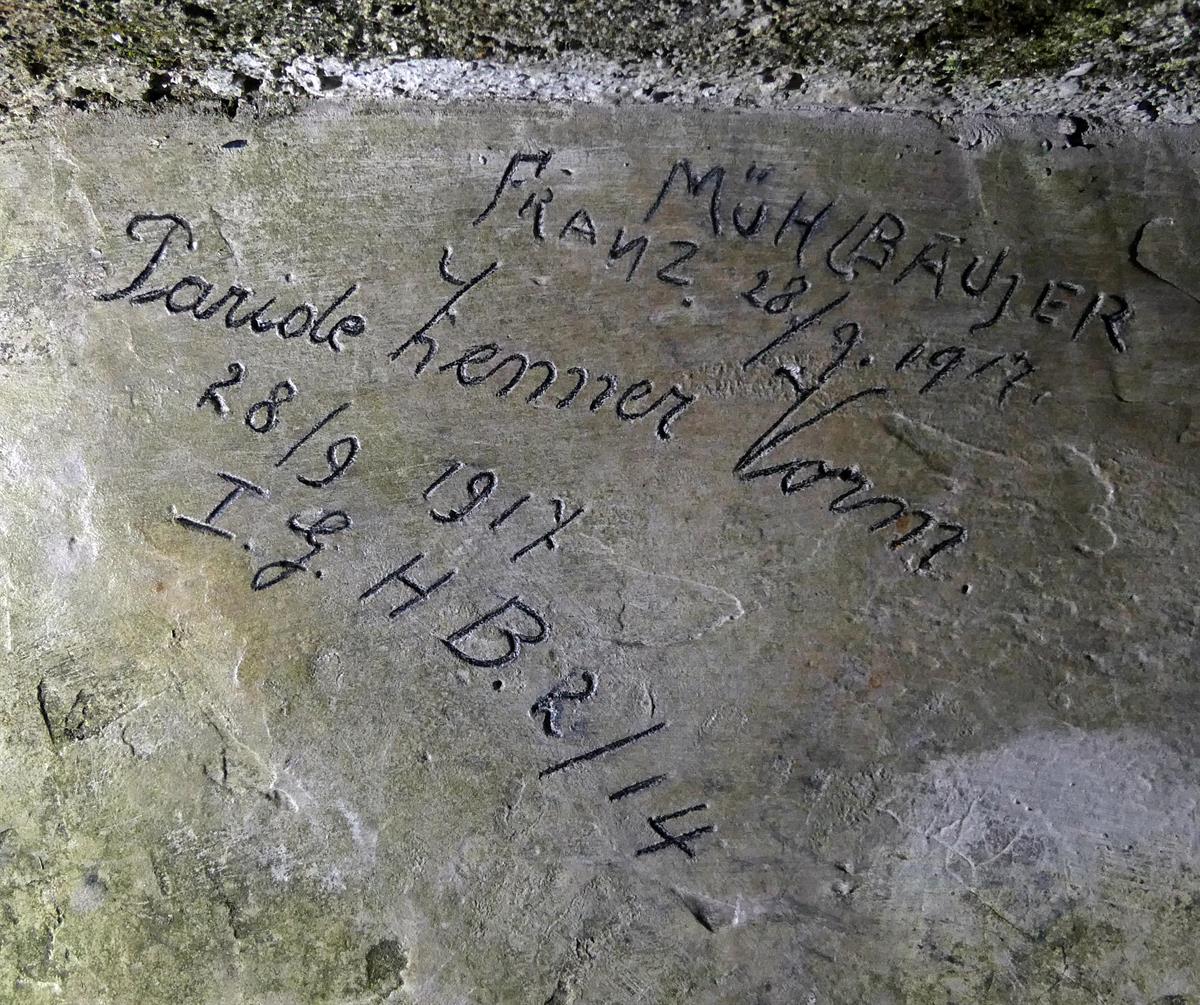 FRANZ. MÜHLBÄUSER
28/9. 1917.
Paride Zenner Vorm.
28/9 1917
I. G. H B. 2/14